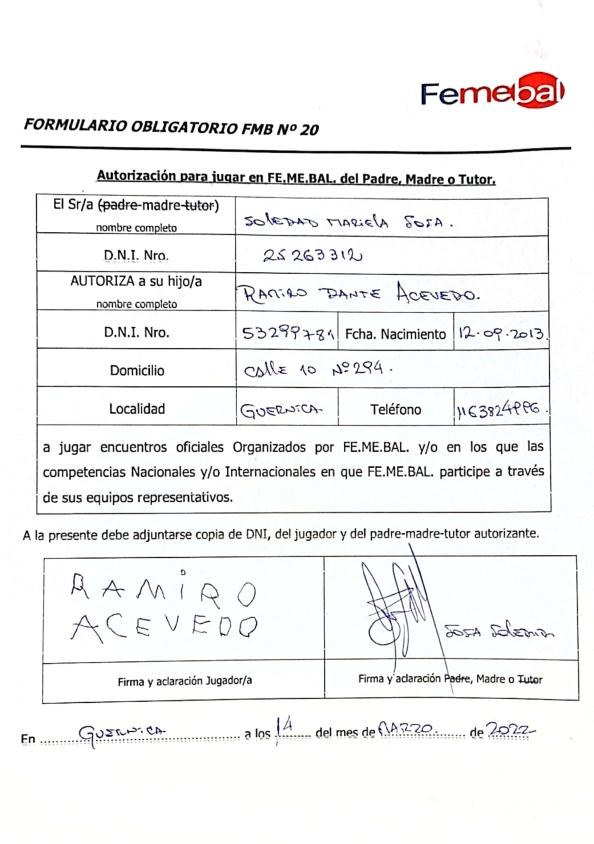 Femebal
FORMULARIO OBLIGATORIO FMB Nº 20
Autorización para jugar en FE.ME.BAL. del Padre, Madre o Tutor.
El Sr/a (padre-madre-tutor)
nombre completo
SOLEDAD MARIELA SOSA.
D.N.I. Nro.
25263312
AUTORIZA a su hijo/a
nombre completo
RAMIRO DANTE ACEVEDO.
D.N.I. Nro. 53299781 Fcha. Nacimiento 12.09.2013.
Domicilio CALLE 10 Nº 294.
Localidad GUERNICA Teléfono
a jugar encuentros oficiales Organizados por FE.ME.BAL. y/o en los que las
competencias Nacionales y/o Internacionales en que FE.ME.BAL. participe a través
de sus equipos representativos.
A la presente debe adjuntarse copia de DNI, del jugador y del padre-madre-tutor autorizante.
RAMIRO
ACEVEDO
SOSA SOLEDAD
Firma y aclaración Jugador/a
Firma y aclaración Padre, Madre o Tutor
En GUERNICA a los 14 del mes de MARZO. de 2022